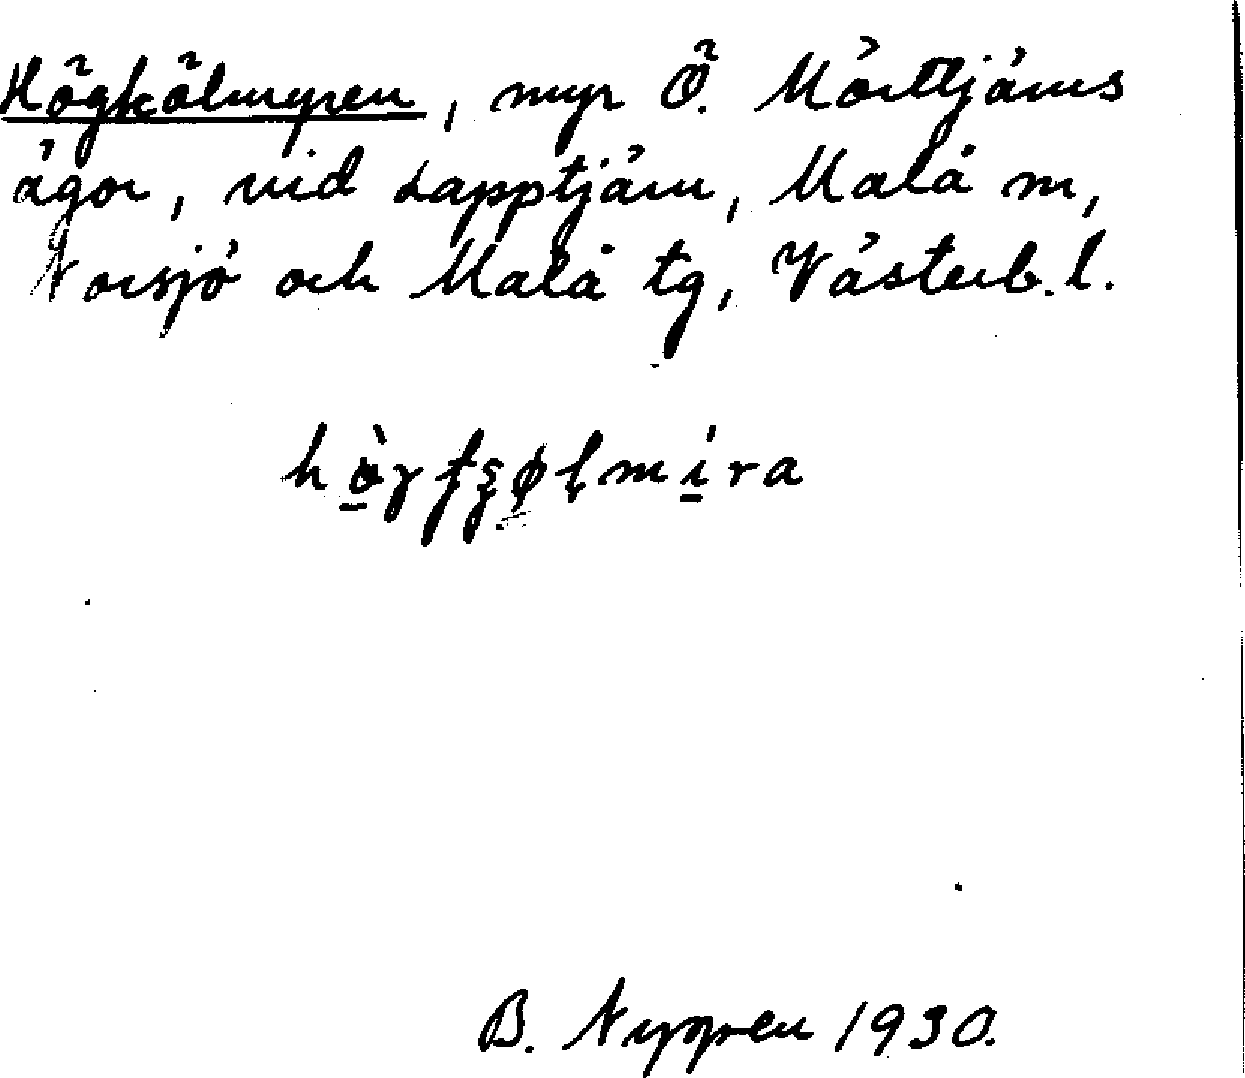 Högkölmyren, myr Ö. Mörttjärns
ägor, vid Lapptjärn, Malå m,
Norsjö och Malå tg, Västerb. l.
B. Nygren 1930.